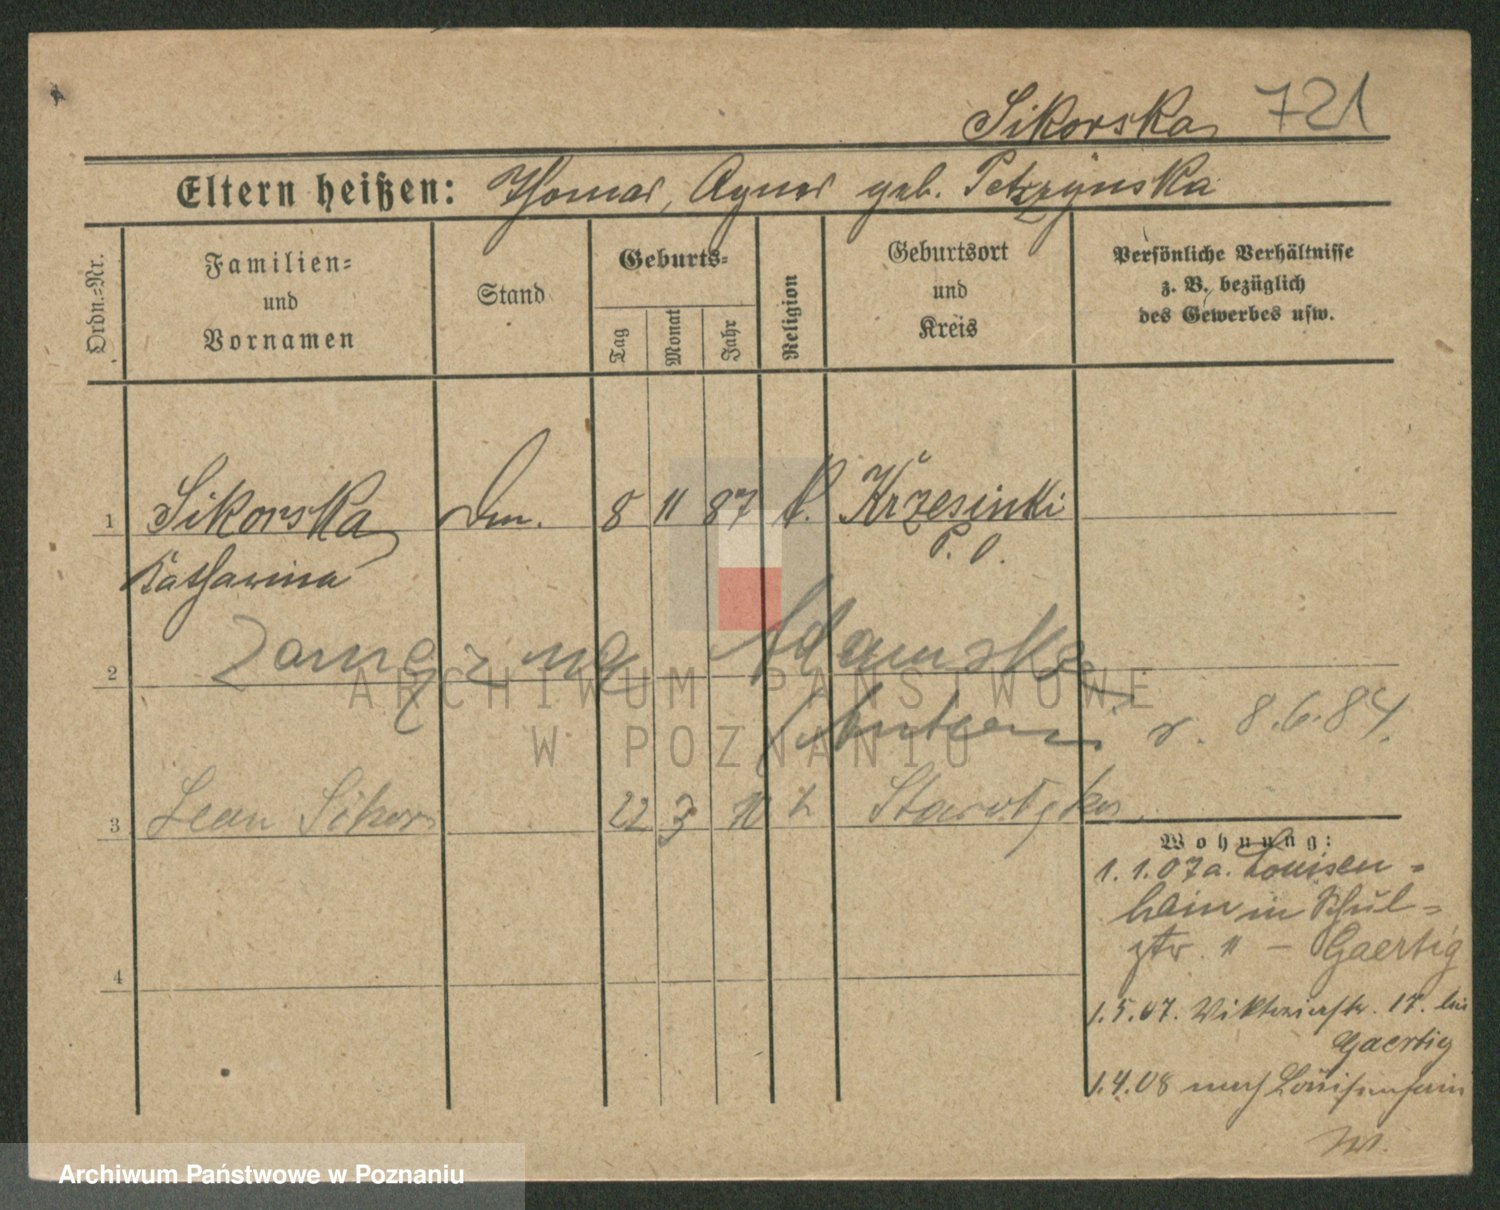 Sikorska 721
Eltern heißen: Thomas, Agnes geb. Petrzynska
Ordn.-Nr.
Familien-
und
Vornamen
Stand
Geburts-
Tag
Monat
Jahr
Religion
Geburtsort
und
Kreis
Persönliche Verhältnisse
z. B. bezüglich
des Gewerbes usw.
1 Sikorska 8 11 87 k. Krzesinki
P. O.
Katharina
2 Adamski
Antoni 8.6.84.
3 22 3 10 k
Wohnung:
1.1.07 a. Louisen-
hain in Schul-
ztr. 11 - Gaertig
1.5.07. Viktoriastr. 17. bei
Gaertig
1.4.08 nach Louisenhain
4
ARCHIWUM PAŃSTWOWE
W POZNANIU
Archiwum Państwowe w Poznaniu